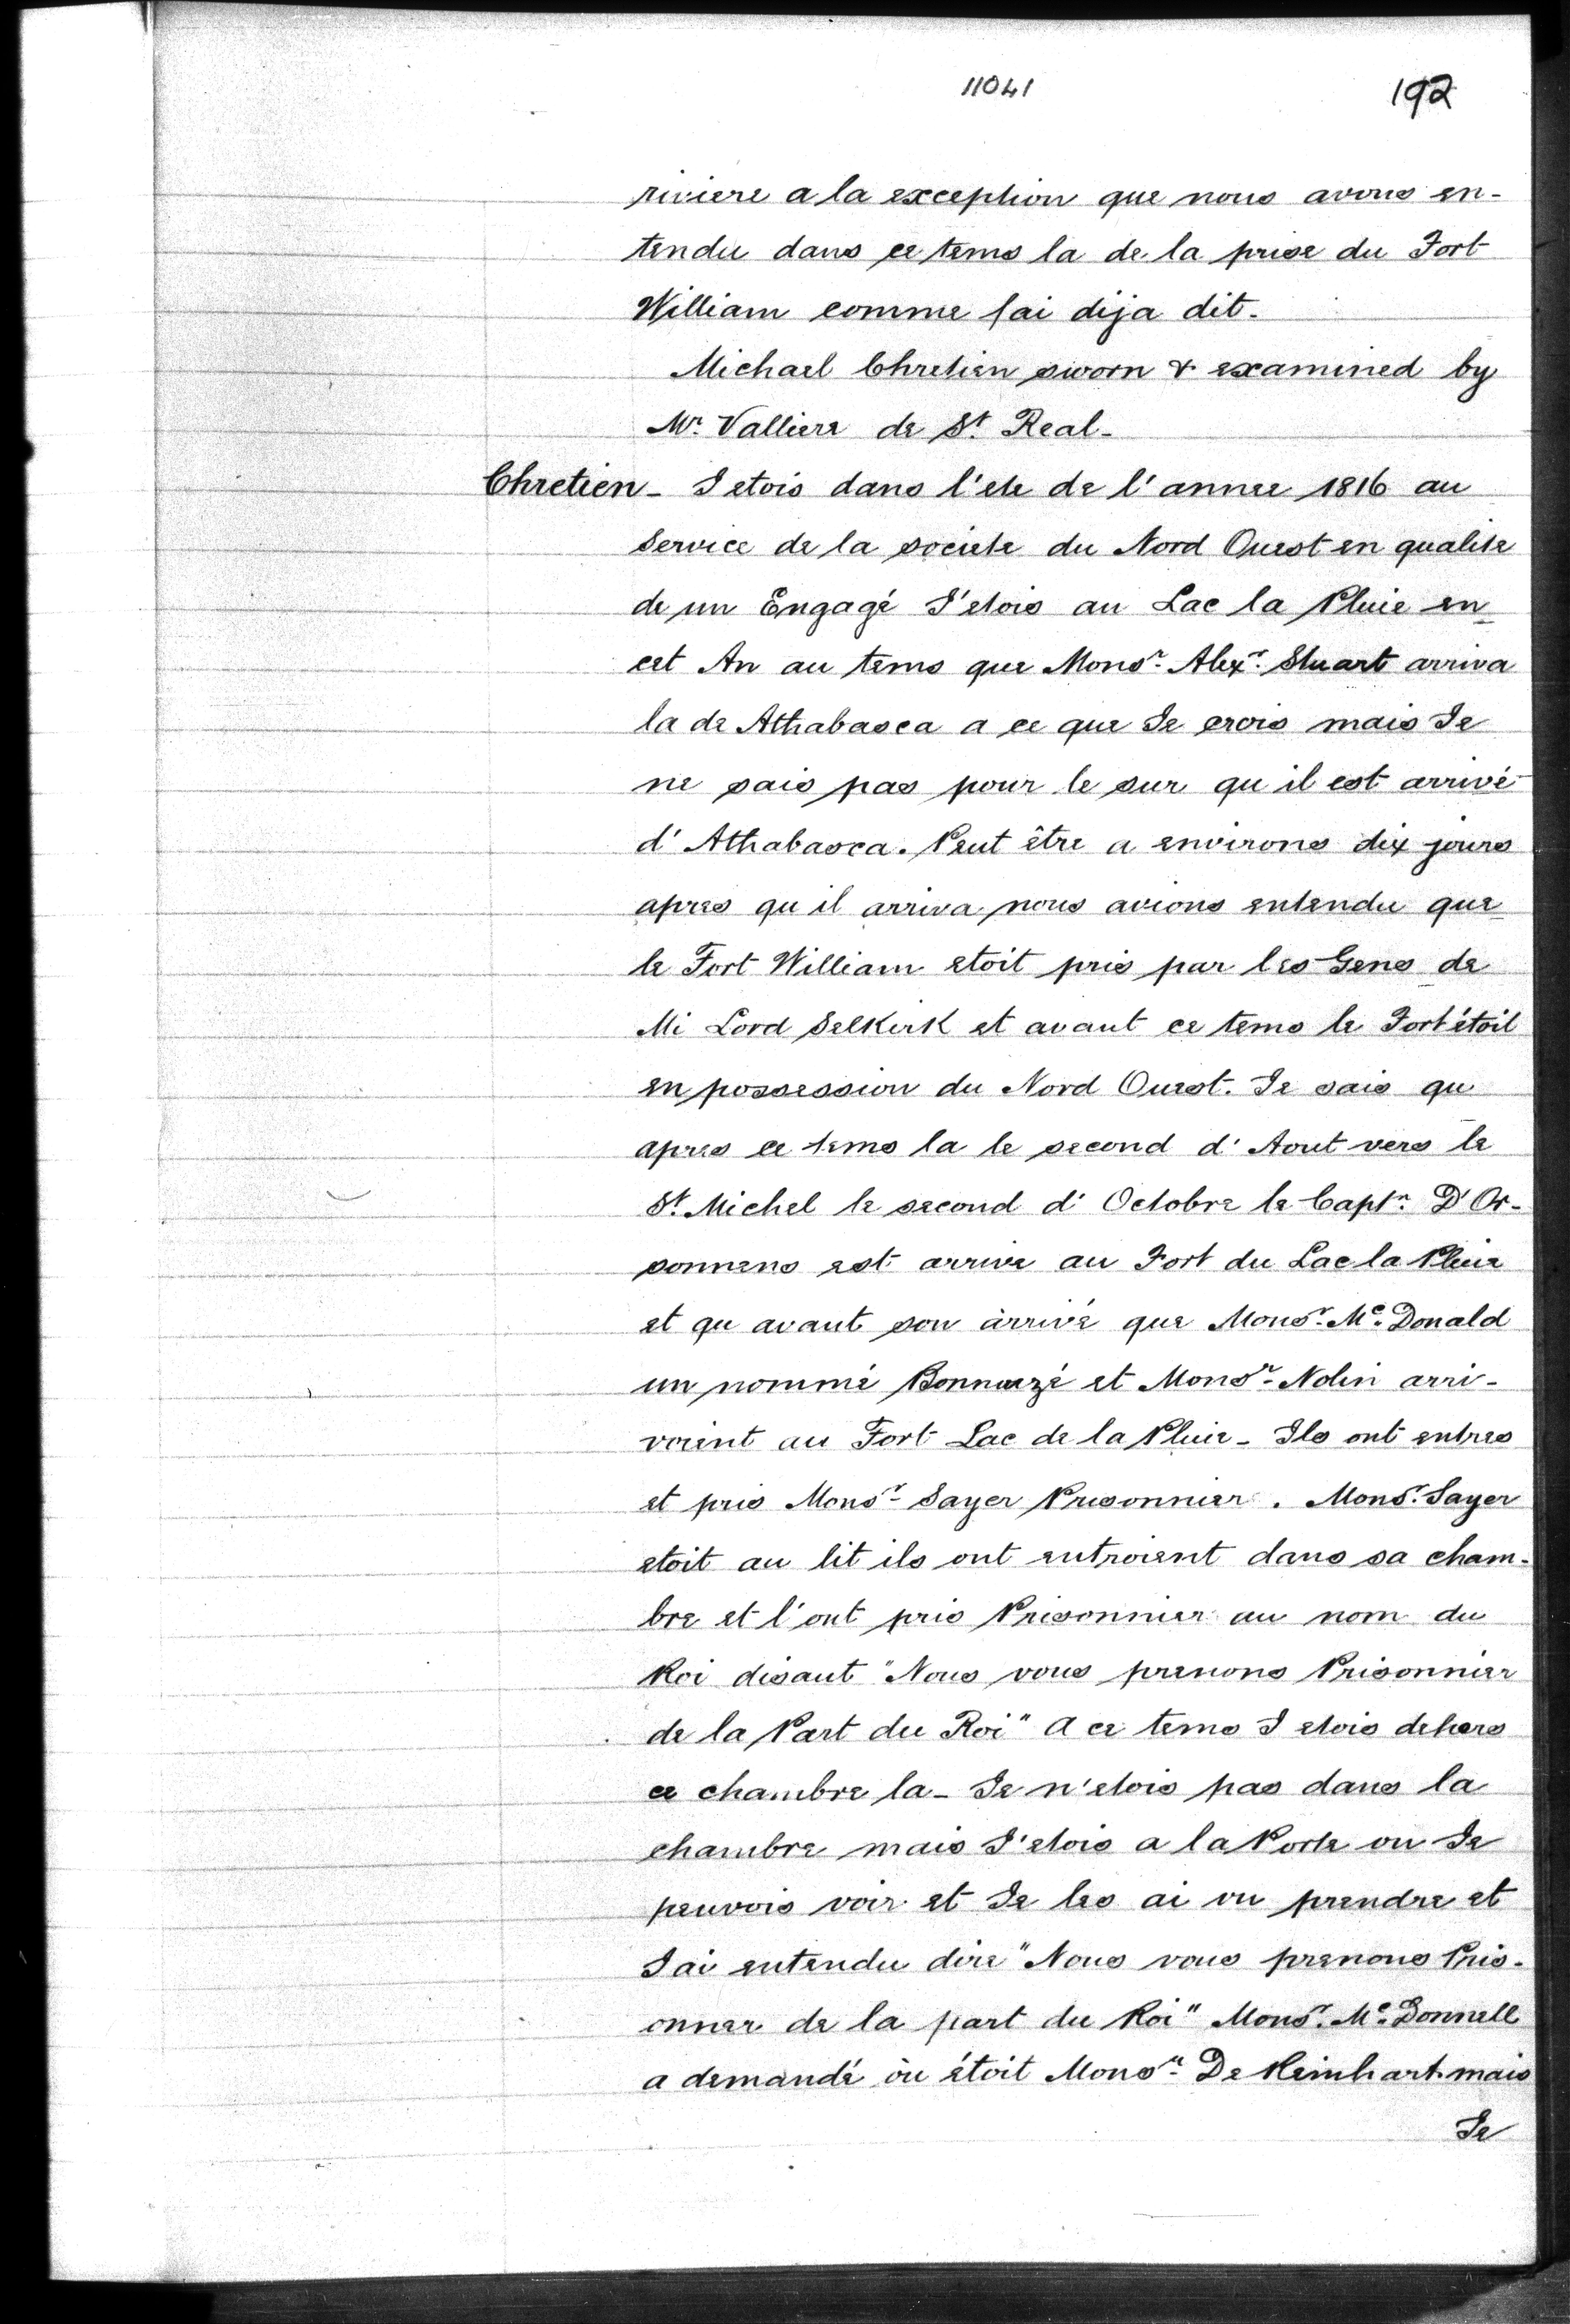 11041
192
riviere a la exception que nous avons en-
tendu dans ce tems la de la prise du Fort
William comme j'ai dija dit.
Michael Chretien sworn & examined by
Mr. Valliere de St. Real-
Chretien - J etois dans l'ete de l'annee 1816 au
Service de la societe du Nord Ouest en qualite
de un Engagé J'etois au Lac la Pluie en
cet An au tems que Monsr. Alexr. Stuart arriva
la de Athabasca a ce que Je crois mais Je
ne sais pas pour le sur qu il est arrivé
d'Athabasca. Peut être a environs dix jours
apres qu il arriva nous avions entendu que
le Fort William etoit pris par les Gens de
Mi Lord Selkirk et avant ce tems le Fort étoit
en possession du Nord Ouest. Je sais qu
apres ce tems la le second d'Aout vers le
St. Michel le second d'Octobre le Captn. D'Or-
sonnens est arrive au Fort du Lac la Pluie
et qu avant son àrrivé que Monsr. Mc. Donald
un nommé Bonnuzé et Monsr. Nolin arri-
voient au Fort Lac de la Pluie - Ils ont entres
et pris Monsr. Sayer Prisonnier. Monsr. Sayer
etoit au lit ils ont entroient dans sa cham-
bre et l'ont pris Prisonnier au nom du
Roi disant "Nous vous prenons Prisonnier
de la Part du Roi" A ce tems J etois dehors
ce chambre la - Je n'etois pas dans la
chambre mais J'etois a la Porte ou Je
peuvois voir et Je les ai vu prendre et
J ai entendu dire "Nous vous prenons Pris-
onner de la part du Roi" Monsr. Mc. Donnell
a demandé òu étoit Monsr. De Reinhart mais
Je